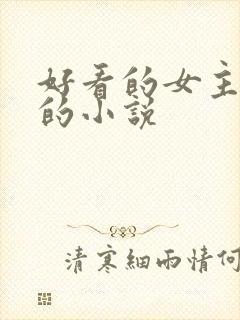 好看的女主
的小说
清寒细雨情何